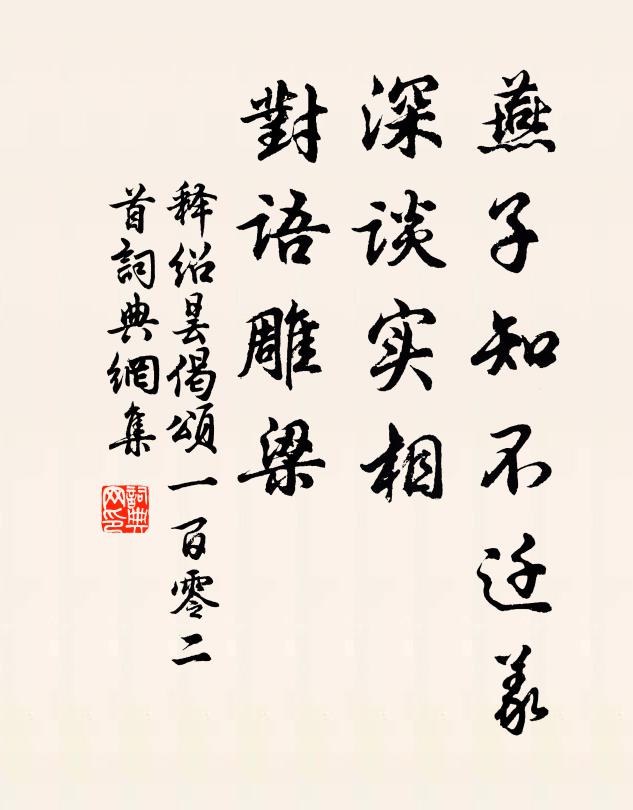 燕子知不迁義
深談实相
對語雕梁
释绍昙偈頌一百零二
首詞典網集
詞典网印